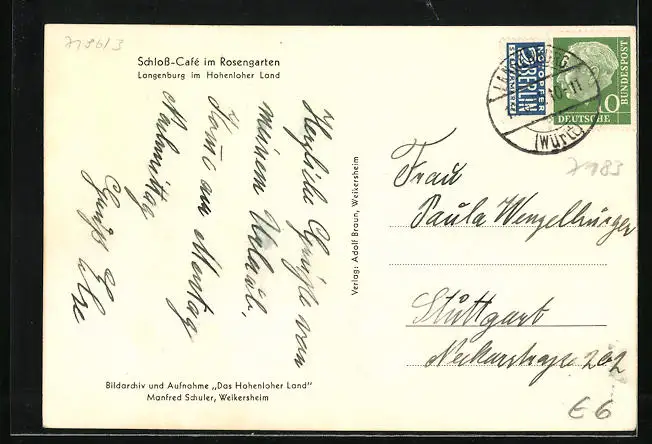 7196/3
Schloß-Café im Rosengarten
Langenburg im Hohenloher Land
Herzliche Grüße von
meinem Urlaub.
Komme am Montag
Nachmittag
Gruß
NOTOPFER
2 BERLIN
STEUERMARKE
10
DEUTSCHE
BUNDESPOST
LANGENBURG
(Württ)
7983
Frau
Paula Wenzelburger
Stuttgart
Neckarstrasse 202
Verlag: Adolf Braun, Weikersheim
Bildarchiv und Aufnahme „Das Hohenloher Land"
Manfred Schuler, Weikersheim
E6